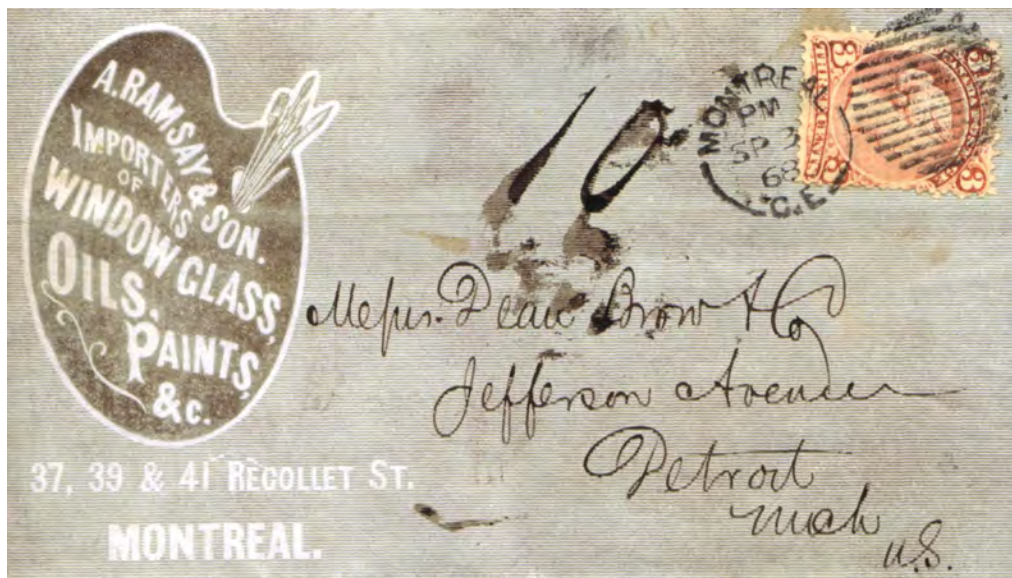 A. RAMSAY & SON.
IMPORTERS
OF
WINDOW GLASS,
OILS.
PAINTS,
&c.
37, 39 & 41 RÈCOLLET ST.
MONTREAL.
10
MONTREAL
PM
SP 3
68
C.E
3
3
3
3
Messrs. Dean Brow & Co
Jefferson Avenue
Detroit
Mich
U.S.